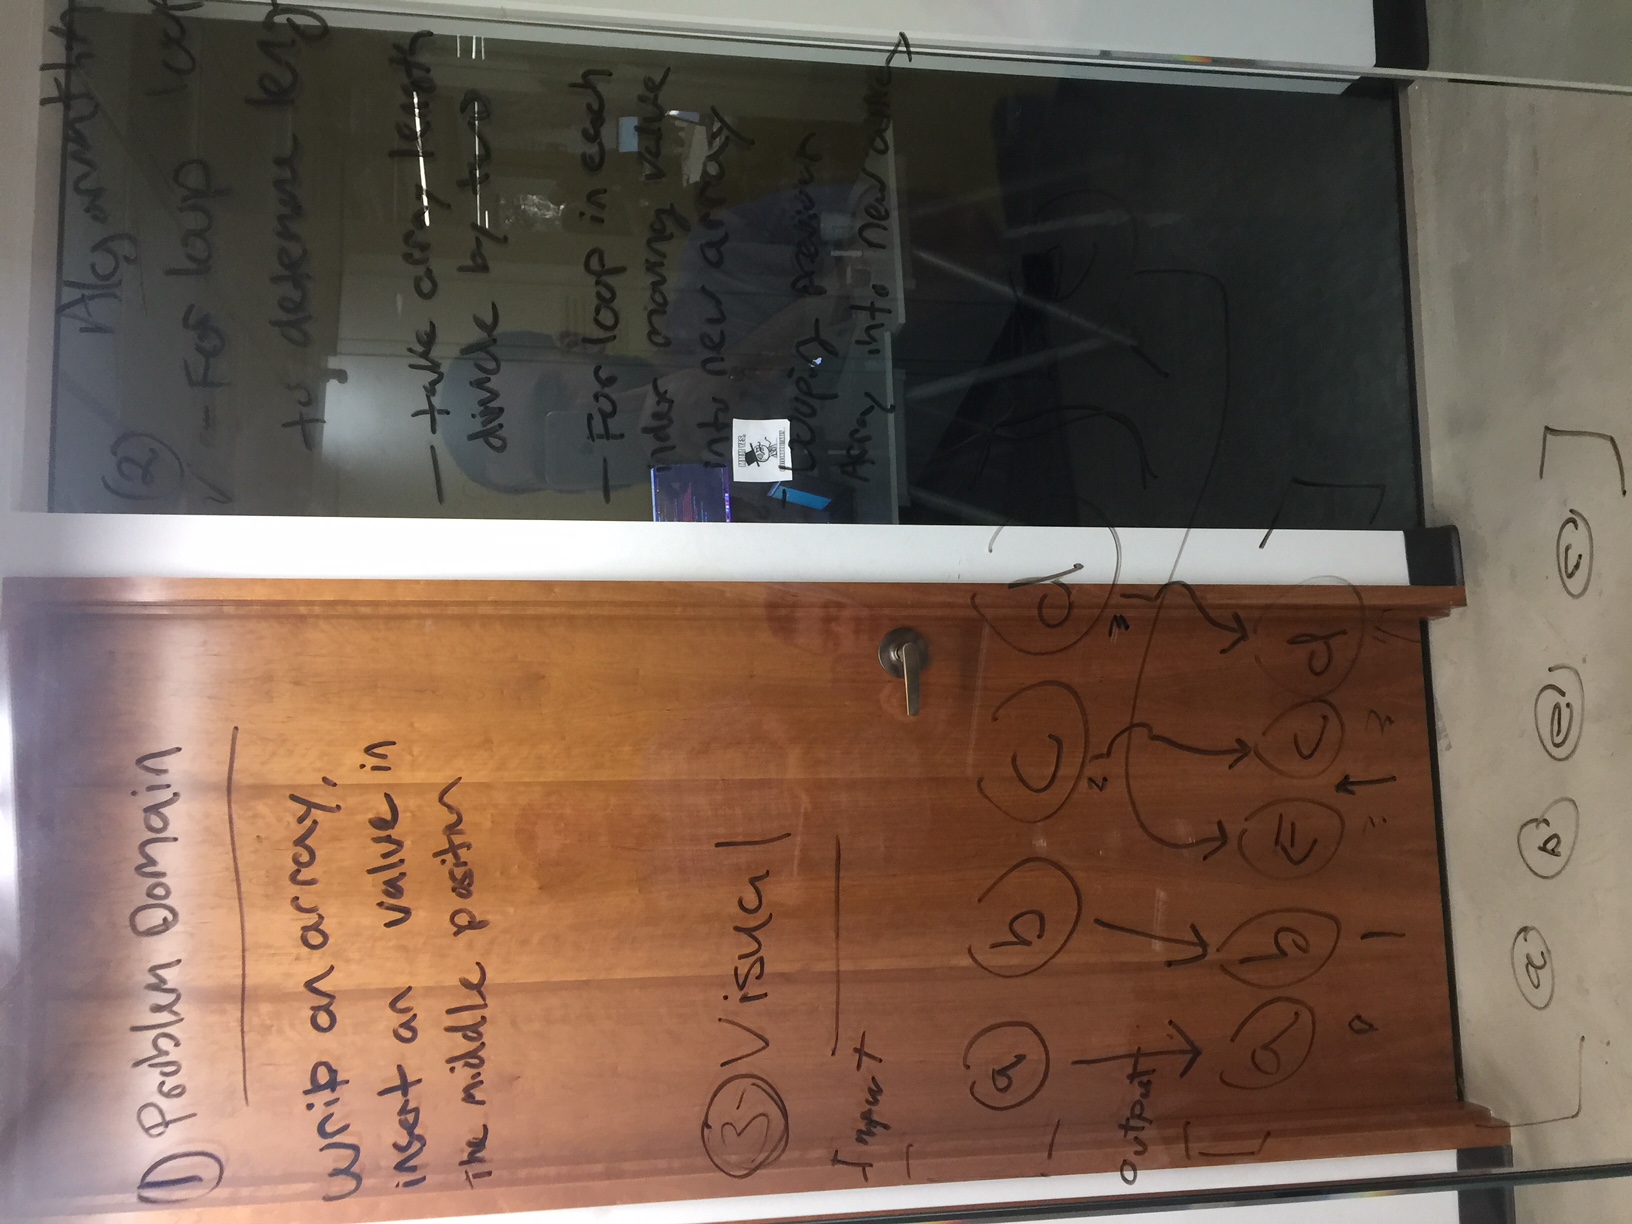 1) Problem Domain
write an array,
insert an value in
The middle position
(2) Algorithm
- For loop loop
to determine leng
- take array length
divide by two
- For loop in each
index moving value
into new array
- Looping previous
Array into new array
3- Visual
Input
a b c d
2 3
output
a b E c d
0 1 2 3 4
MMM YES,
a b e c